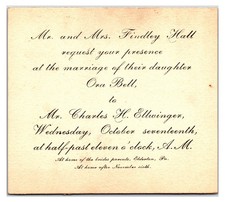 Mr. and Mrs. Findley Hall
request your presence
at the marriage of their daughter
Ora Bell,
to
Mr. Charles H. Ellwinger,
Wednesday, October seventeenth,
at half-past eleven o'clock, A.M.
At home of the brides parents, Elderton, Pa.
At home after November sixth.